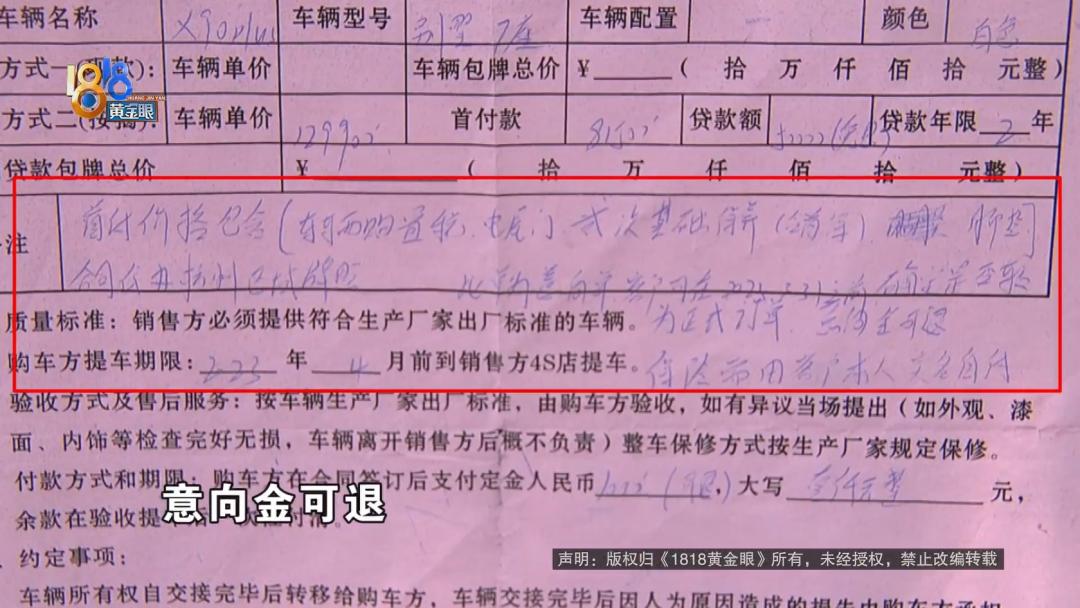 车辆名称 X90plus 车辆型号 别墅 7座 车辆配置 颜色 白色
方式一 款): 车辆单价 车辆包牌总价 ¥ ( 拾 万 仟 佰 拾 元整)
1818黄金眼
方式二(按揭): 车辆单价 129900 首付款 贷款额 贷款年限 2 年
贷款包牌总价 ¥ ( 拾 万 仟 佰 拾 元整)
注 首付价格包含 购置税、电尾门、贰次基础保养 脚垫
合同代办杭州区域牌照 此 意向 客户可在 前 确定是否转
质量标准：销售方必须提供符合生产厂家出厂标准的车辆。 为正式订单，意向金可退
购车方提车期限: 223 年 4 月前到销售方4S店提车。 保险需用客户本人实名自付
验收方式及售后服务：按车辆生产厂家出厂标准，由购车方验收，如有异议当场提出（如外观、漆
面、内饰等检查完好无损，车辆离开销售方后概不负责）整车保修方式按生产厂家规定保修。
付款方式和期限：购车方在合同签订后支付定金人民币 (可退)，大写 元，
余款在验收提 付清。
意向金可退
约定事项：
声明：版权归《1818黄金眼》所有，未经授权，禁止改编转载
车辆所有权自交接完毕后转移给购车方，车辆交接完毕后因人为原因造成的损失由购车方承担